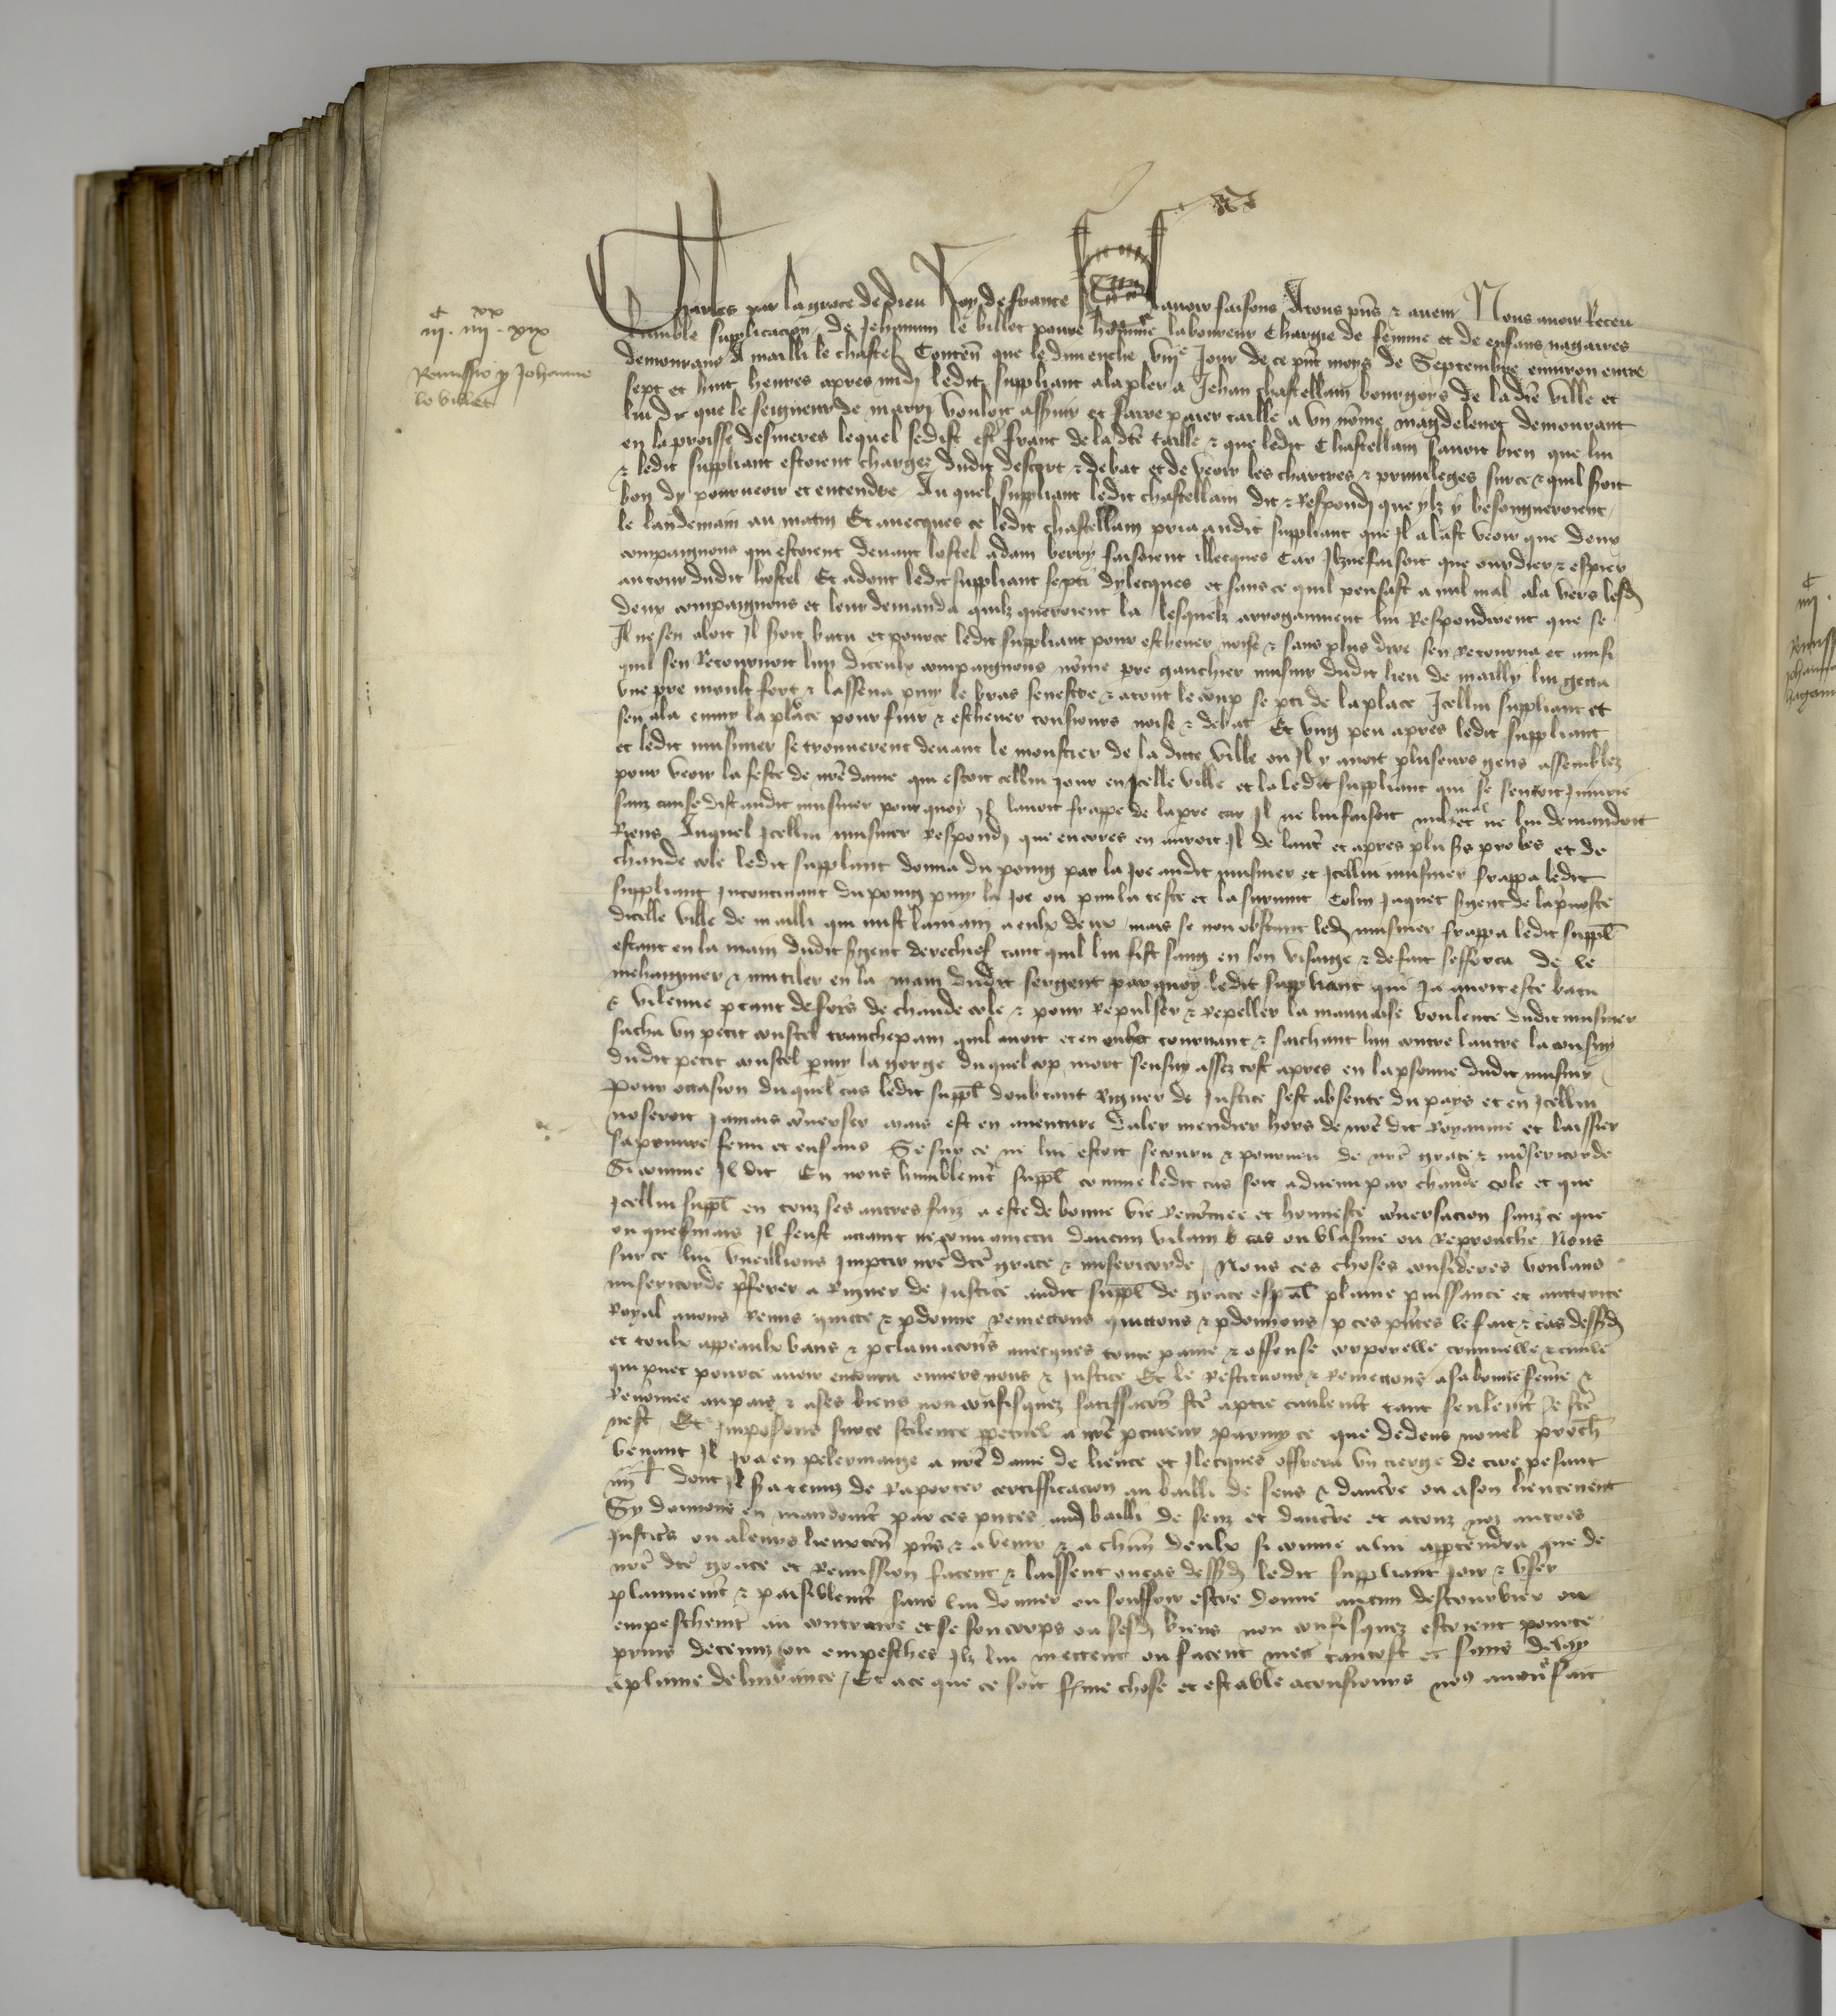 c xx
iij. iiij. xix
Remissio p Johanne
le billet
Charles par la grace de dieu Roy de france Savoir faisons Atous pns & avenir Nous avoir Receu
lumble supplicacion de Jehannin le billet povre homme laboureur Chargie de femme et de enfans nagaires
demourant A mailli le chastel Conten que le dimenche viije Jour de ce pnt moys de Septembre environ entre
sept et huit heures apres midj ledit suppliant ala pler a Jehan chastellain bourgois de ladte ville et
lui dit que le seigneur de marry vouloit asseir et faire paier taille a un nome magdelenet demourant
en la proisse desmeres lequel se dist estre franc de ladte taille & que ledit Chastellain savoit bien que lui
& ledit suppliant estoient chargez dudit descort & debat et de veoir les chartres & privileges sur ce & quil seroit
bon dy pourveoir et entendre Au quel suppliant ledit chastellain dit & Respondj que ylz y besongneroient
le landemain au matin Et avecques ce ledit chastellain pria audit suppliant que Il alast veoir que deux
compaignons qui estoient devant lostel adam berry faisoient illecques Car Ilz ne faisoit que ourdier & espier
autour dudit hostel Et adont ledit suppliant se pti dylecques et sans ce quil pensast a nul mal ala vers lesd
deux compaignons et leur demanda quilz queroient la lesquelz arrogamment lui Respondirent que se
Il ne sen aloit Il seroit batu et pource ledit suppliant pour eschever noise & sans plus dire sen retourna et ainsi
quil sen Retournoit lun diceulx compaignons nome pre gauchier musnier dudit lieu de mailly lui getta
une pre moult fort & lassena pmy le bras senestre & atout le coup se pti de la place Icellui suppliant et
sen ala emmy la place pour fuir & eschever tousjours noise & debat Et ung peu apres ledit suppliant
et ledit musnier se trouverent devant le moustier de la dicte ville ou Il y avoit pluseurs gens assemblez
pour veoir la feste de nre dame qui estoit cellui jour en Icelle ville et la ledit suppliant qui se sentoit Injurie
sanz cause dist audit musnier pour quoy Il lavoit frappe de la pre car Il ne lui faisoit nul mal et ne lui demandoit
Riens Auquel Icellui musnier Respondj que encores en auroit Il de lautre et apres plusrs proles et de
chaude cole ledit suppliant donna du poing par la joe audit musnier et Icellui musnier frappa ledit
suppliant Incontinant du poing pmy la joe ou pmi la teste et la survint Colin Jaquet sgent de la prevoste
dicelle ville de mailli qui mist la main a eulx deux mais ce non obstant led musnier frappa ledit suppl
estant en la main dudit sgent derechief tant quil lui fist sang en son visaige & de fait sefforca de le
mehaigner & mutiler en la main dudit sergent par quoy ledit suppliant qui ja avoit este batu
& vilenne p tant de fois de chaude cole & pour Repulser & Repeller la mauvaise voulente dudit musnier
sacha un petit coustel tranchepain quil avoit et en courant & sachant lun contre lautre
dudit petit coustel pmy la gorge duquel cop mort sensuy assez tost apres en la psonne dudit musnier
Pour occasion duquel cas ledit suppl doubtant Rigueur de Justice sest absente du pays et en Icellui
noseroit jamais converser mais est en aventure daler mendier hors de nre dit Royaume et laissier
sa povure feme et enfans Se sur ce ne lui estoit secouru & pourveu de nre grace & misericorde
Si comme Il dit En nous humblemt suppl comme ledit cas soit advenu par chaude cole et que
Icellui suppl en touz ses autres faiz a este de bonne vie Renommee et honneste conversacion sanz ce que
onquesmais Il feust attaint ne convaincu daucun vilain cas ou blasme ou Reprouche Nous
sur ce lui vueillions Impartir nre dte grace & misericorde Nous ces choses considerees voulans
misericorde pferer a Rigueur de Justice audit suppl de grace espal plaine puissance et auctorite
Royal avons Remis quitte & pdonne Remettons quittons & pdonnons p ces pntes le fait & cas dessusd
et toulx appeaulx bans & pclamacons avecques toute paine & offense corporelle criminelle & civile
qui puet pource avoir encouru envers nous & Justice Et le Restituons & Remettons a sa bonne feme &
Renomee au pais & a ses biens non confisquez satisfacon fte a ptie civilemt tant seulemt se fte
nest Et Imposons sur ce silence ppetuel a nre pcureur parmy ce que dedens nouel proch
venant Il Ira en pelerinaige a nre dame de lience et Ilecques offrera un cierge de cire pesant
iiij l dont Il sera tenuz de Raporter certifficacion au bailli de sens & daucerre ou a son lieutenent
Sy donnons en mandemt par ces pntes aud bailli de senz et daucerre et a touz noz autres
Justiciers ou a leurs lieuxten pns & avenir & a chun deulx si comme a lui apptendra que de
nre dte grace et Remission facent & laissent ou cas dessusd ledit suppliant Joir & user
plainnemt & paisiblemt sanz lui donner ou souffrir estre donne aucun destourbier ou
empeschemt au contraire et se son corps ou sesd biens non confisquez estoient pource
prins detenuz ou empeschez Ilz lui mettent ou facent mettre tantost et sans delay
a plaine delivrance Et ace que ce soit ferme chose et estable a tousjours nos avons fait